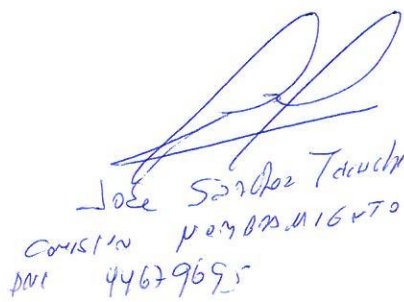 José Sánchez
Comisión Nombramiento
DNI 44679695